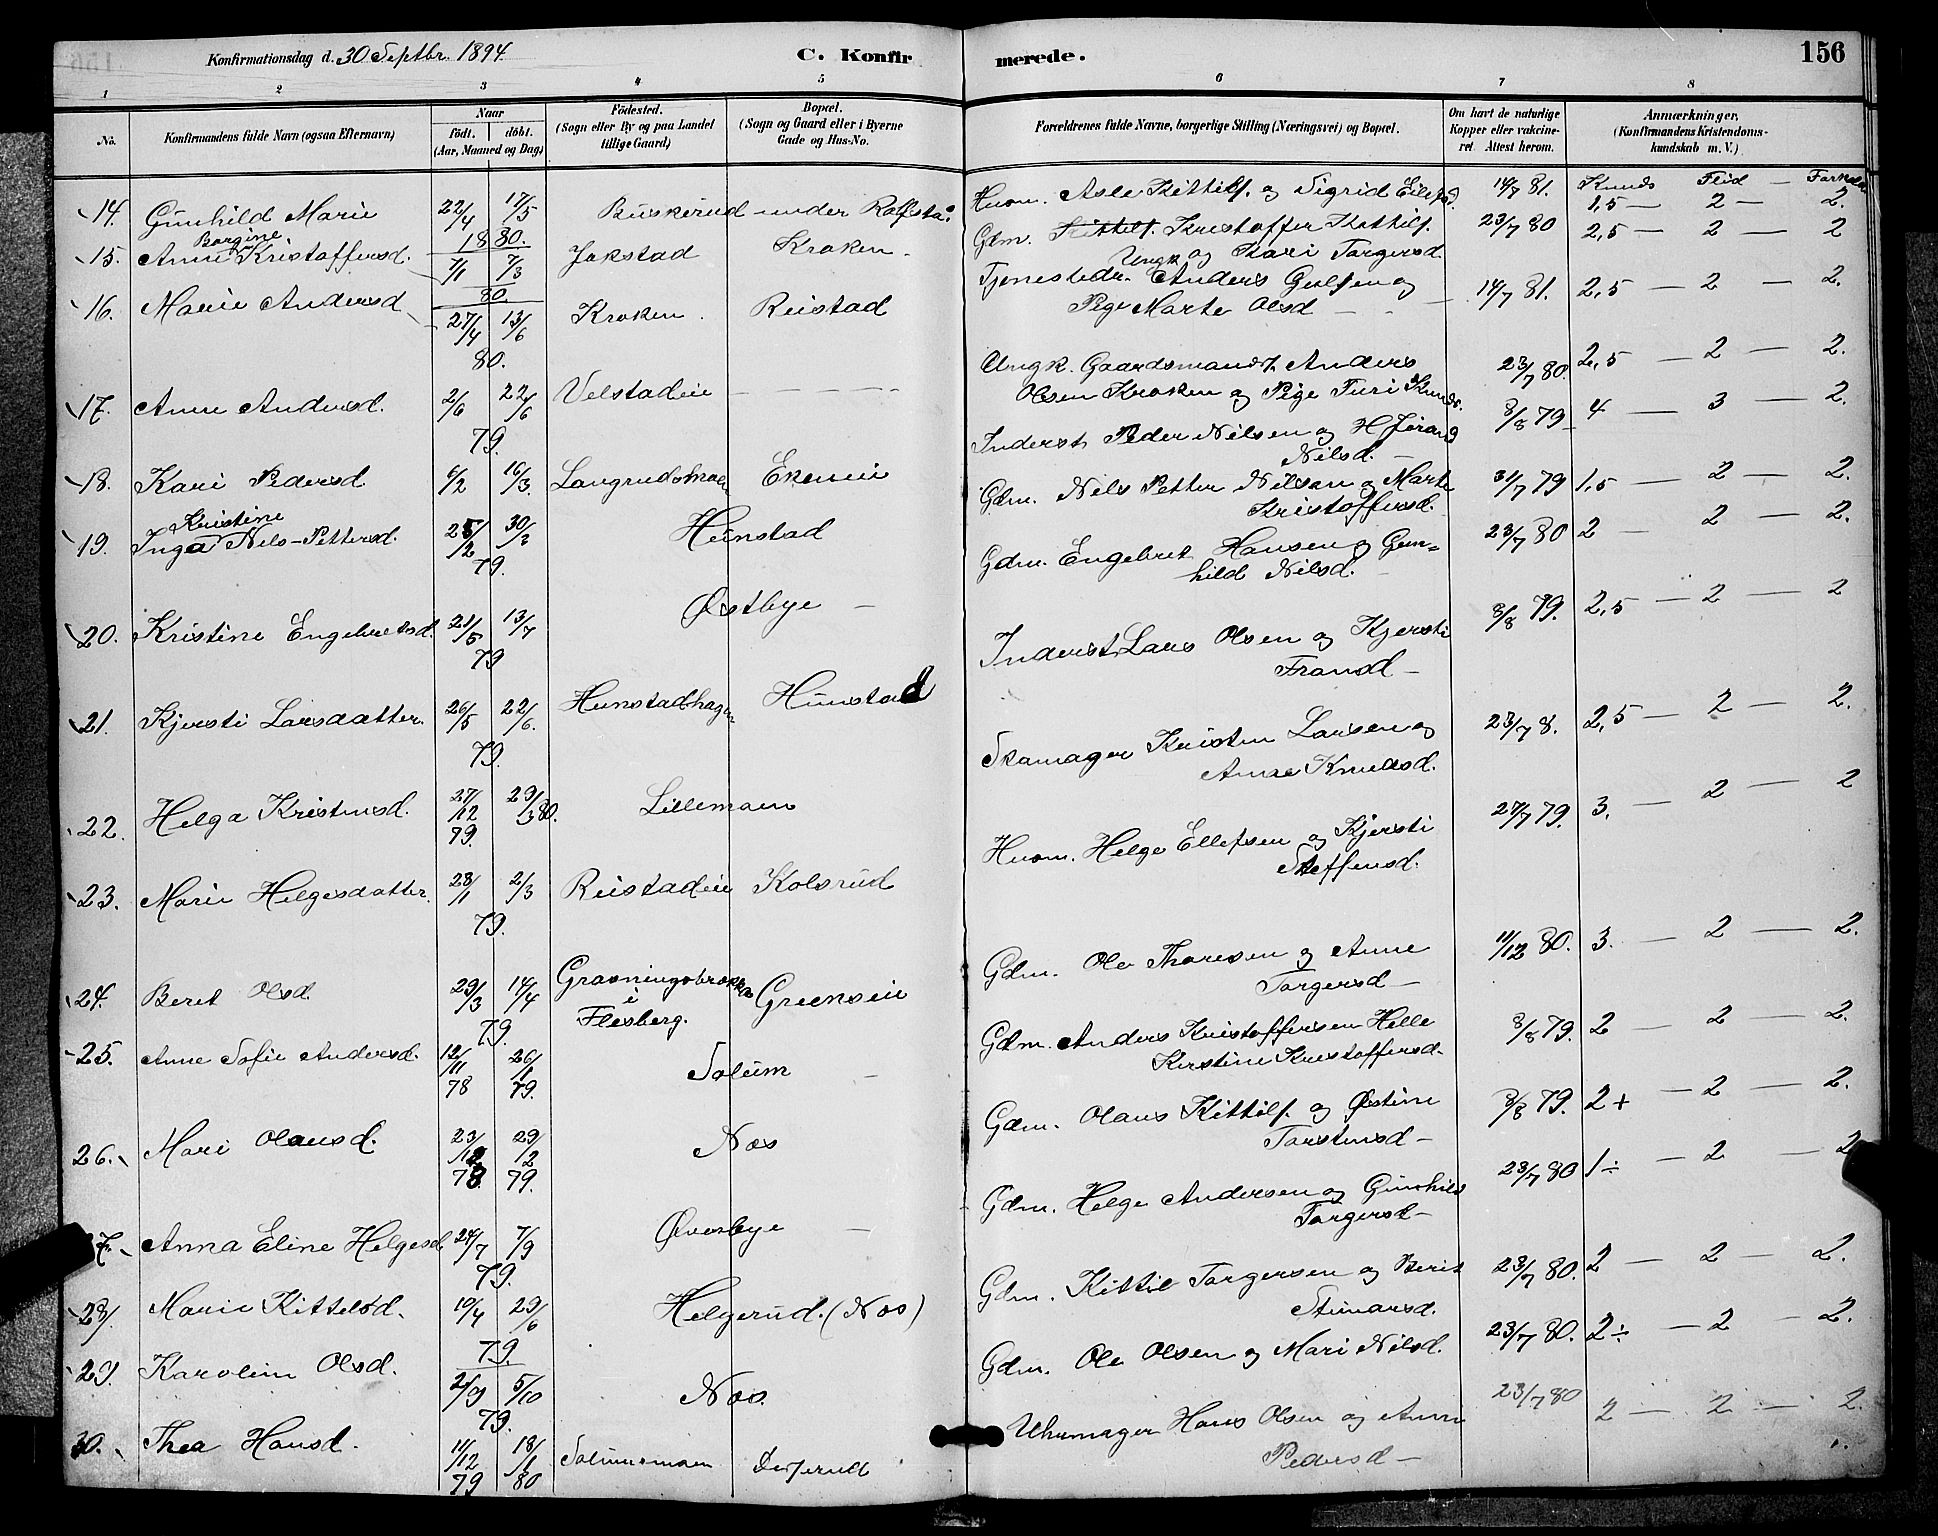 Konfirmationsdag d. 30 Septbr. 1894. C. Konfirmerede. 156
1 2 3 4 5 6 7 8
No.
Konfirmandens fulde Navn (ogsaa Efternavn)
Naar
födt. döbt.
(Aar, Maaned og Dag)
Födested.
(Sogn eller By og paa Landet
tillige Gaard)
Bopæl.
(Sogn og Gaard eller i Byerne
Gade og Hus-No.
Forældrenes fulde Navne, borgerlige Stilling (Næringsvei) og Bopæl.
Om havt de naturlige
Kopper eller vakcine-
ret Attest herom.
Anmærkninger,
(Konfirmandens Kristendoms-
kundskab m. V.)
Kunds Flid — Forhold
14. Gunhild Marie 22/4 17/5 1880. Buskerud under Rolfsta: Husm. Asle Kittilf. og Sigrid 14/7 81. 1,5 — 2 — 2.
15. Anne Borgine Kristoffersd. 7/1 7/3 80. Jokstad Kroken. Gdm. Kittilf. Kristoffer Kittilf. og Kari Torgersd. 23/7 80 2,5 — 2 — 2
16. Marie Andersd 27/4 13/6 80. Kroken. Reistad
Ungk Tjenestedr. Anders Gulsen og
Pige Marte Olsd — 14/7 81. 2,5 — 2 — 2.
17. Anne Andersd. 2/6 22/6 79. Velstadeie
Ungk. Gaardsmandsf. Anders
Olsen Kroken og Pige Turi Knuds. 23/7 80. 2,5 — 2 — 2.
18. Kari Pedersd 6/2 16/3. Langrudsmoen Ekeneie
Inderst Peder Nilsen og Hjørand
Nilsd. — 8/8 79 4 — 3 — 2.
19. Inga Kristine Nils-Pettersd. 25/12 30/3 79. Hunstad
Gdm. Nils Petter Nilsen og Marte
Kristoffersd. 31/7 79 1,5 — 2 — 2.
20. Kristine Engebretsd. 21/5 13/7 79 Østbye —
Gdm. Engebret Hansen og Gun=
hild Nilsd. — 23/7 80 2 — 2 — 2.
21. Kjersti Larsdatter. 26/5 22/6. 79. Hunstadhagen Hunstad
Inderst Lars Olsen og Kjersti
Fransd — 8/8 79. 2,5 — 2 — 2
22. Helga Kristensd. 27/12 79. 29/3 80. Lillemoen
Skomager Kristen Larsen og
Anne Knudsd. 23/7 8. 2,5 — 2 — 2.
23. Marie Helgesdatter. 28/1 2/3 79. Reistadeie Kolsrud
Husm. Helge Ellefsen og Kjersti
Steffensd. 27/7 79. 3. — 2 — 2
24. Beret Olsd. 29/3 14/4 79. i Flesberg. Greenseie
Gdm. Ole Thoresen og Anne
Torgersd — 11/12 80. 3. — 2 — 2.
25. Anne Sofie Andersd. 12/11 78 26/1 79. Solum —
Gdm. Anders Kristoffersen Helle
Kirstine Kristoffersd. 8/8 79. 2 — 2 — 2.
26. Mari Olausd. 23/12 78. 29/2 79. Næs
Gdm. Olaus Kittilf. og Østine
Torstensd — 8/8 79. 2+ — 2 — 2.
27. Anna Eline Helgesd 24/7 7/9 79. Øverbye —
Gdm. Helge Andersen og Gunhild
Torgersd — 23/7 80 1÷ — 2 — 2
28. Marie Kittelsd. 19/4 29/6 79. Helgerud. (Næs)
Gdm. Kittil Torgersen og Berit
Steinarsd. 23/7 80. 2 — 2 — 2.
29. Karoline Olsd. 2/9 5/10 79. Næs.
Gdm. Ole Olsen og Mari Nilsd. 23/7 80. 2÷ — 2 — 2.
30. Thea Hansd. 11/12 79 18/1 80 Solumsmoen
Uhrmager Hans Olsen og Anne
Pedersd — 23/7 80 2 — 2 — 2.